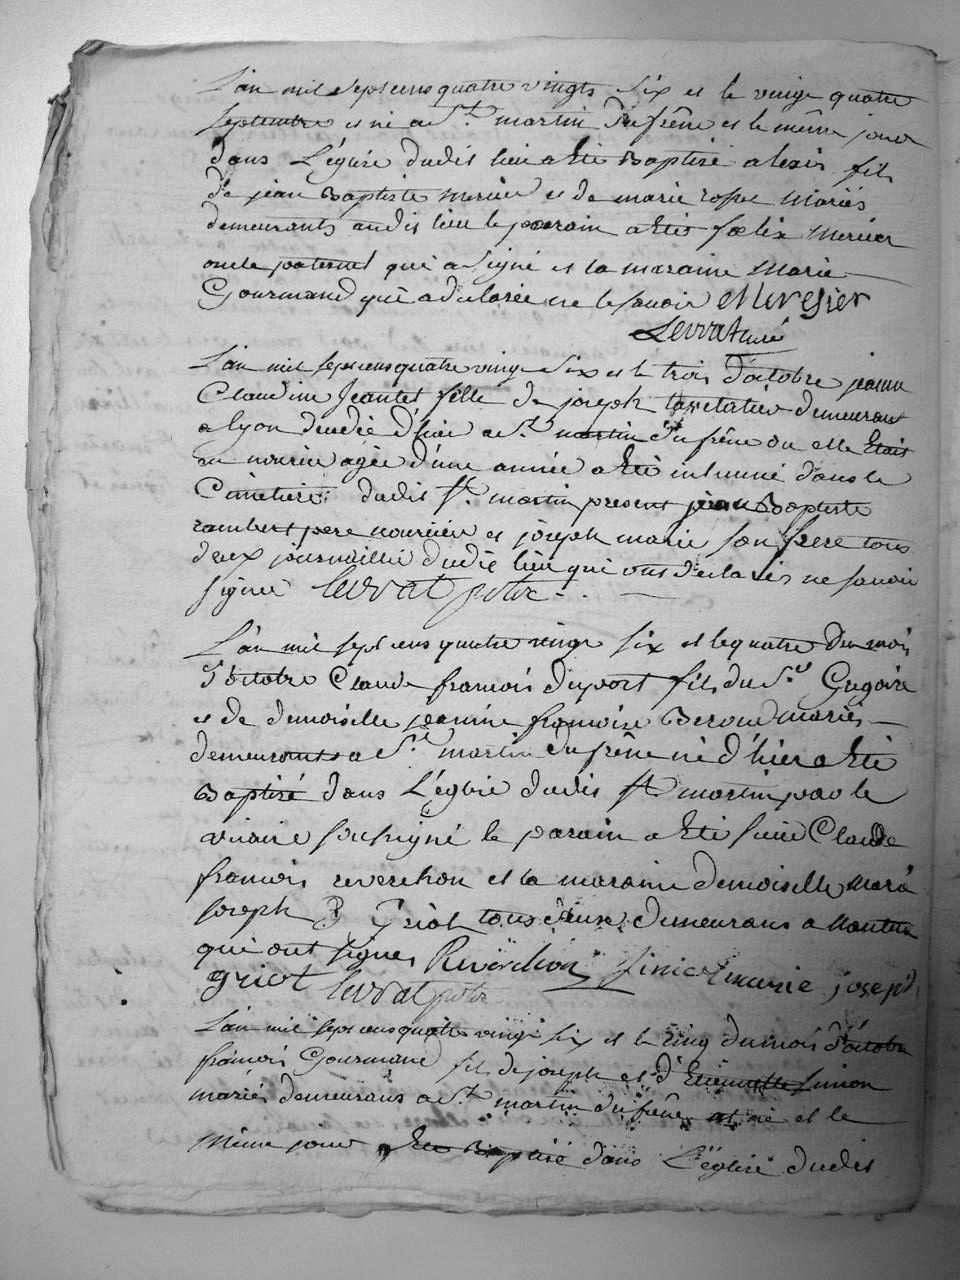 L'an mil sept cens quatre vingts six et le vingt quatre
septembre est né a St martin du frêne et le même jour
dans L'église dudit lieu a Eté Baptisé alexis fils
de jean Baptiste mercier et de marie Mariés
demeurants audit lieu le parain a Eté foelix mercier
oncle paternel qui a signé et la maraine Marie
Gourmand qui a déclarée ne le savoir Mercier
Levrat curé
L'an mil sept cens quatre vingt six et le trois d'octobre jeanne
Claudine Jeantet fille de joseph demeurant
a lyon décédé d'hier a St martin du frêne ou elle Etait
en nourice agée d'une année a Eté inhumé dans le
Cimetière dudit St martin present jean Baptiste
rambert pere nouricier et joseph marie son frere tous
deux journaillié dudit lieu qui ont déclarés ne savoir
signer Levrat ptre
L'an mil sept cens quatre vingt six et le quatre du mois
d'octobre Claude francois duport fils du Sr Gregoire
et de demoiselle jeanne francoise Beroud mariés
demeurants a St martin du frêne né d'hier a Eté
Baptisé dans L'église dudit St martin par le
vicaire soussigné le parain a Eté sieur Claude
francois reverchon et la maraine demoiselle marie
joseph Griot tous deux demeurans a Nantua
qui ont signes Reverchon marie joseph
griot Levrat ptre
L'an mil sept cens quatre vingt six et le cinq du mois d'octobre
francois Gourmand fils de joseph et d'Etiennette Simon
mariés demeurans a St martin du frêne est né et le
même jour Eté Baptisé dans L'église dudit